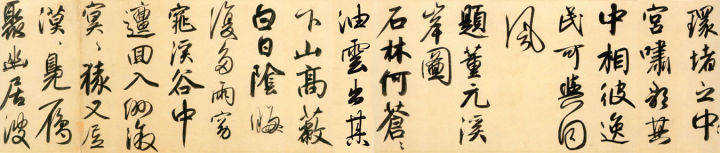 環堵之中
宮嘯歌其
中相彼逸
民可與同
風
題董元溪
岸圖
石林何蒼〻
油雲出其
下山高蔽
白日陰晦
復多雨窈
窕溪谷中
邅回入洲漵
冥〻猿又居
漠〻鳧雁
聚幽居彼